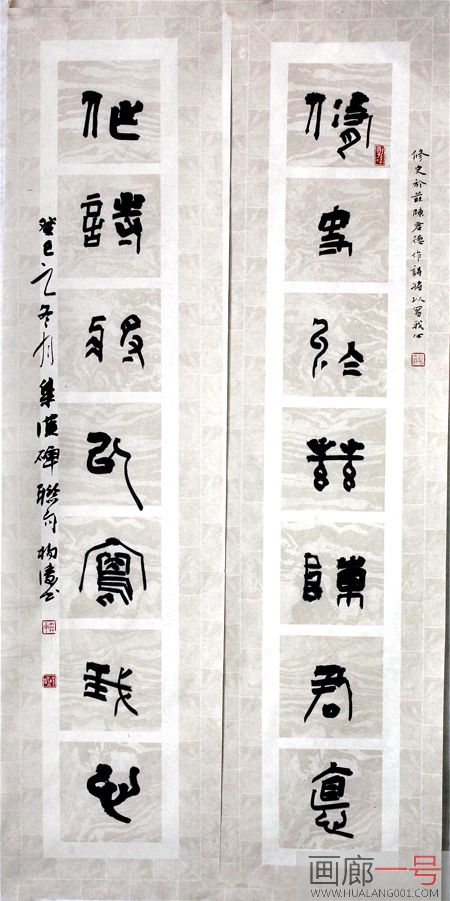 修史於茲陳君德作詩以寫我心
修史於茲陳君德
作詩以寫我心
癸巳之冬月集漢碑聯句書
画廊一号
WWW.HUALANG001.COM